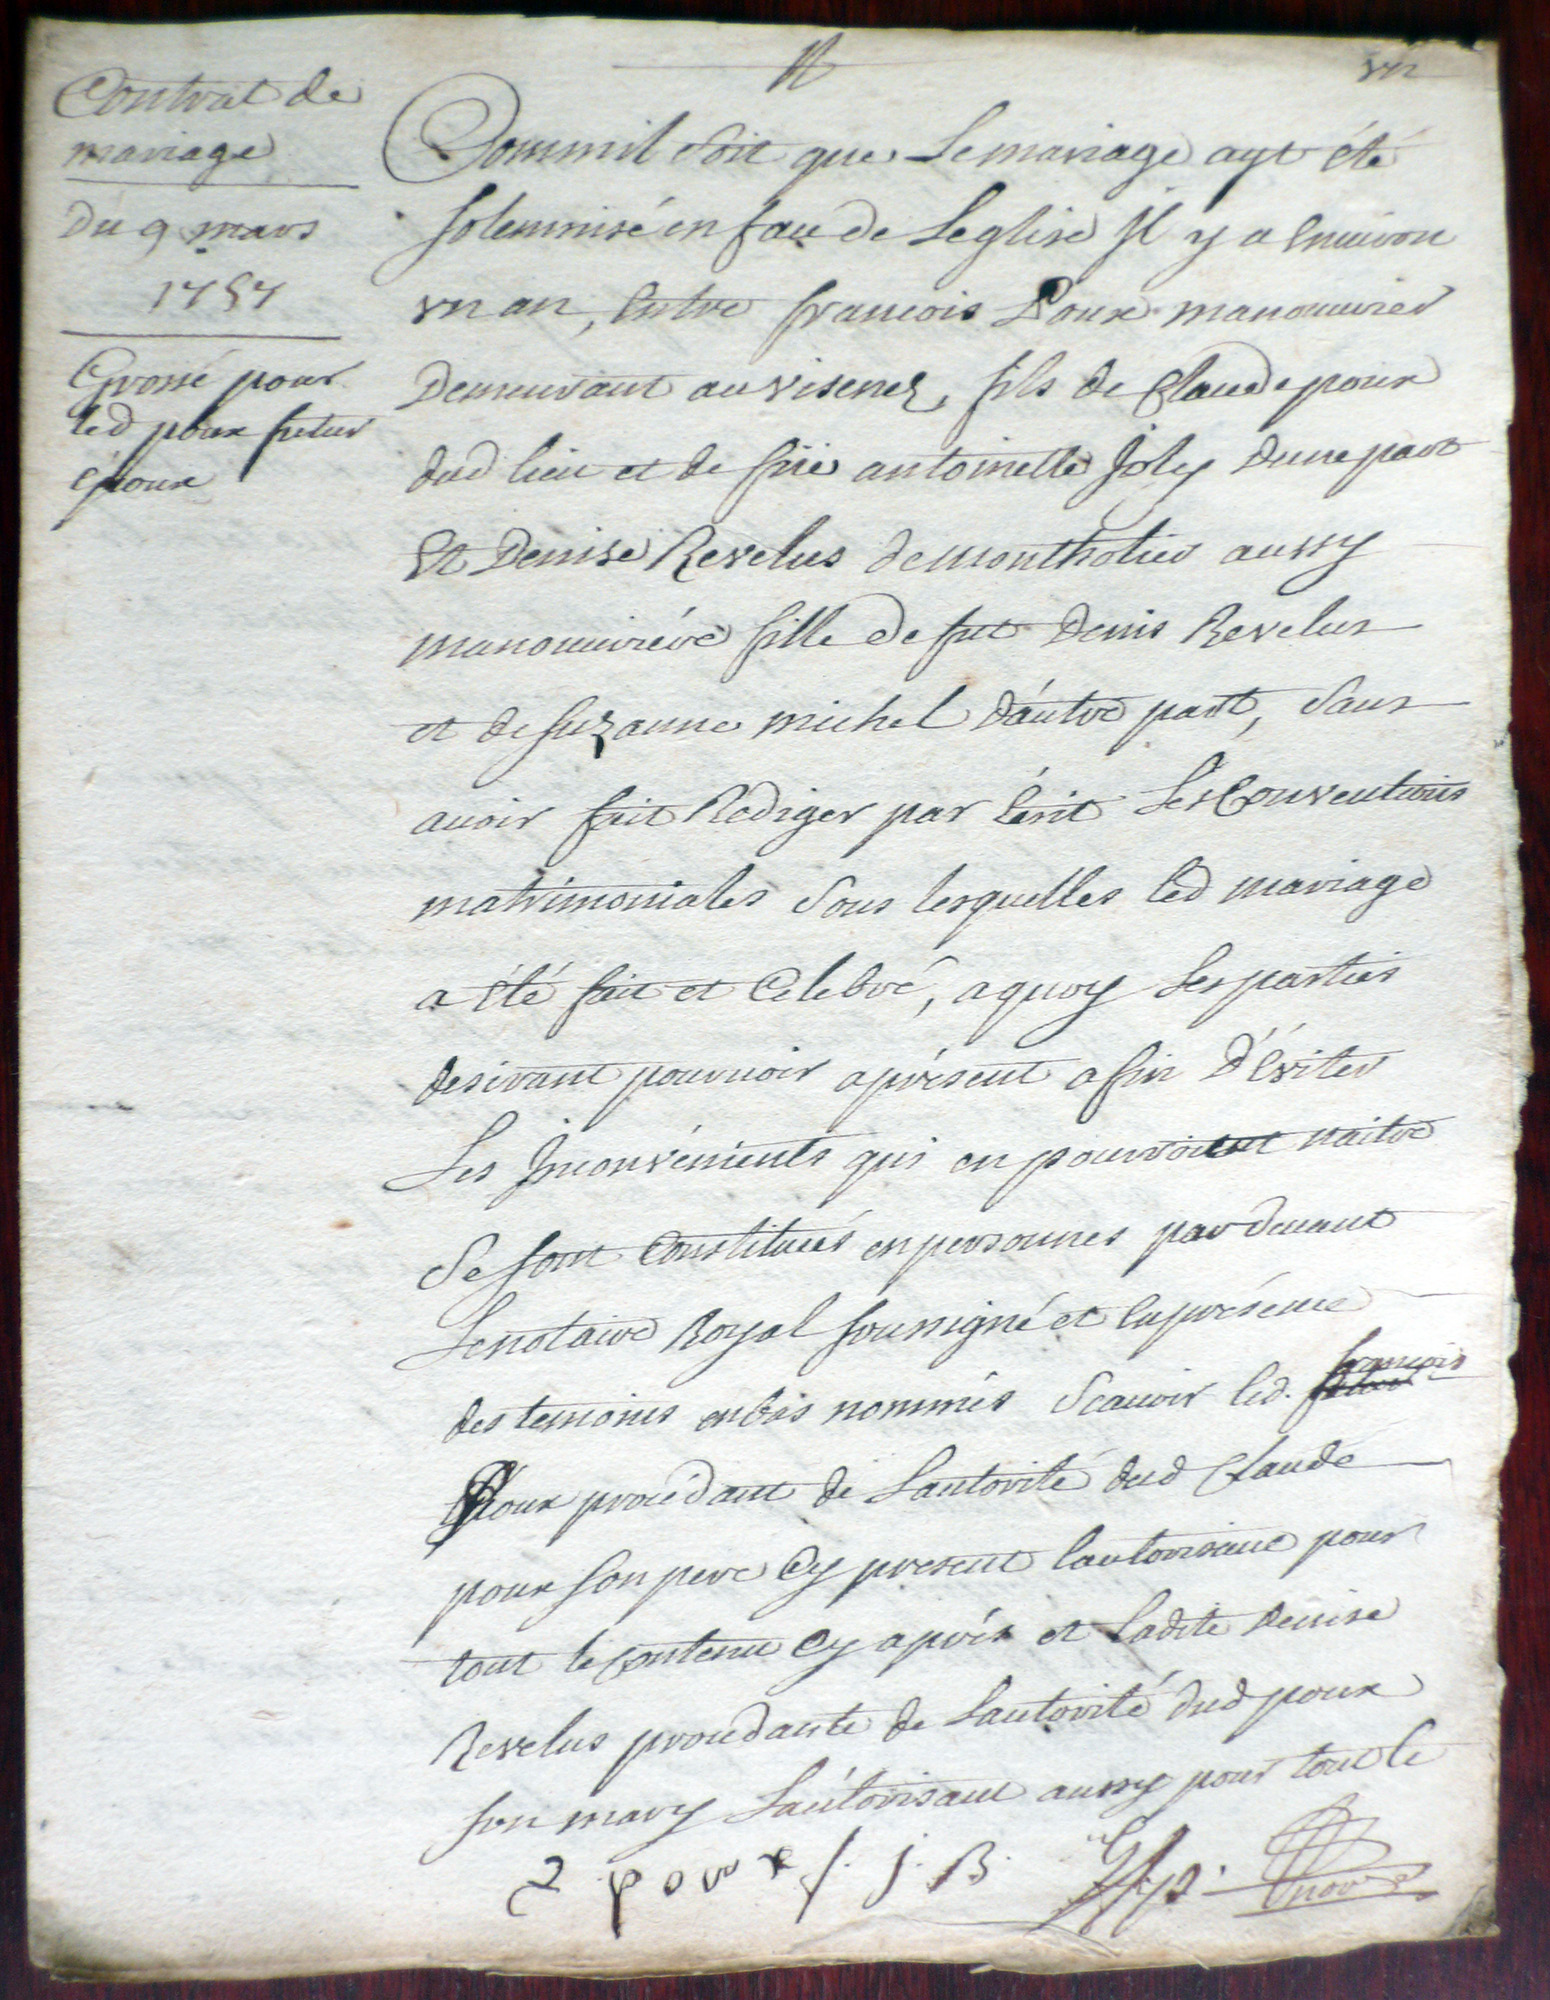 vn
Contrat de
mariage
Du 9 mars
1757
Grossé pour
led poux futur
époux
Commil soit que Le mariage ayt été
solemnisé en face de Leglise Jl y a Environ
vn an, Entre francois Poux manouurier
Demeurant au visenez, fils de Claude poux
dud lieu et de füe antoinette Joly Dune part
Et Denise Revelus de montholier aussy
manouuriére fille de fut Denis Revelus
et de suzanne michel d'áutre part, Sans
auoir fait Rediger par Ecrit Les Conventions
matrimoniales Sous lesquelles led mariage
a été fait et Celebré, a quoy Les parties
desirant pouruoir aprésent afin D'Eviter
Les Jnconvénients qui en pourroient naitre
Se sont Constitués en personnes par deuant
Le notaire Royal soussigné et En présence
des temoins en bas nommés Scauoir led. francois
Poux procédant de Lautorité dud Claude
poux son pere Cy present Lautorisant pour
tout le Contenu Cy aprés et Ladite Denise
Revelus procedante de Lautorité dud poux
son mary Láutorisant aussy pour tout le
poux f. j. B.